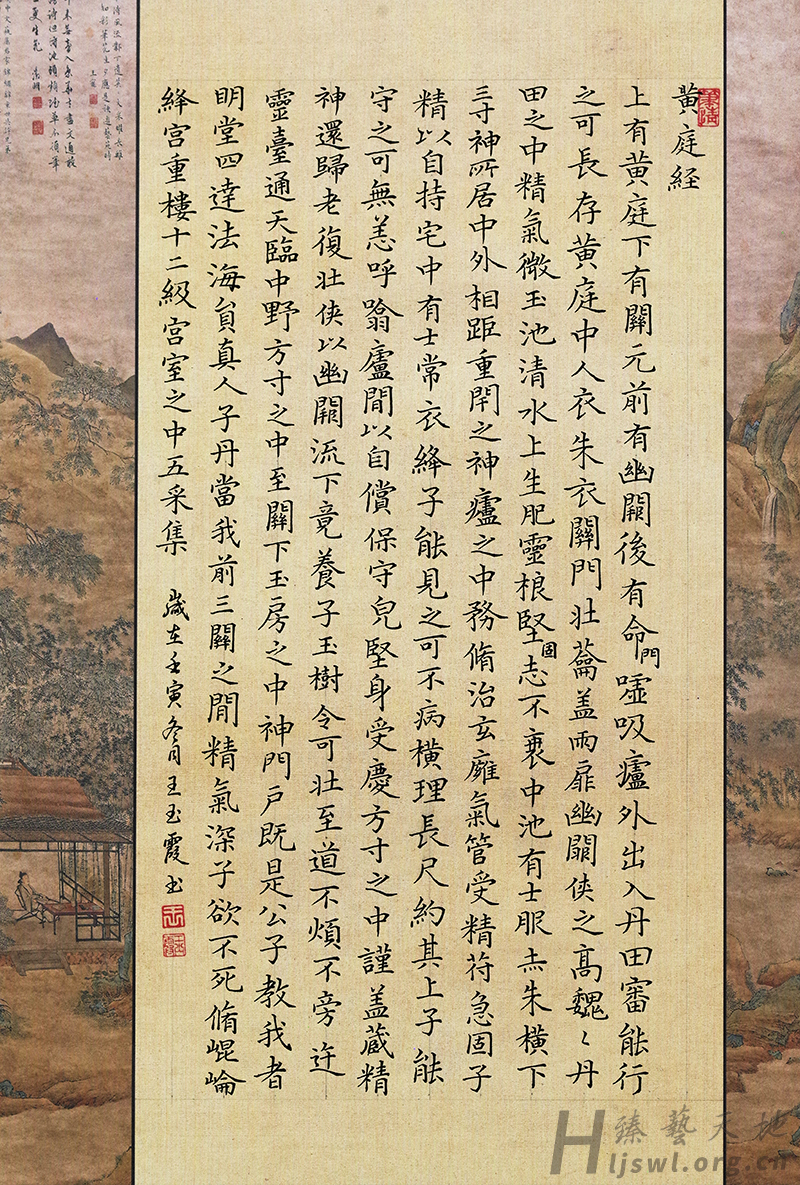 黃庭経
上有黄庭下有關元前有幽闕後有命門嘘吸廬外出入丹田審能行
之可長存黄庭中人衣朱衣關門壯籥盖兩扉幽闕侠之高巍〻丹
田之中精氣微玉池清水上生肥靈根堅固志不衰中池有士服赤朱横下
三寸神所居中外相距重閇之神廬之中務脩治玄癰氣管受精苻急固子
精以自持宅中有士常衣絳子能見之可不病横理長尺約其上子能
守之可無恙呼噏廬間以自償保守皃堅身受慶方寸之中謹盖藏精
神還歸老復壯侠以幽闕流下竟養子玉樹令可壯至道不煩不旁迕
靈臺通天臨中野方寸之中至關下玉房之中神門户既是公子教我者
明堂四達法海貟真人子丹當我前三關之間精氣深子欲不死脩崐崘
絳宮重樓十二級宮室之中五采集 歲在壬寅冬月王玉霞书
臻藝天地
Hljswl.org.cn